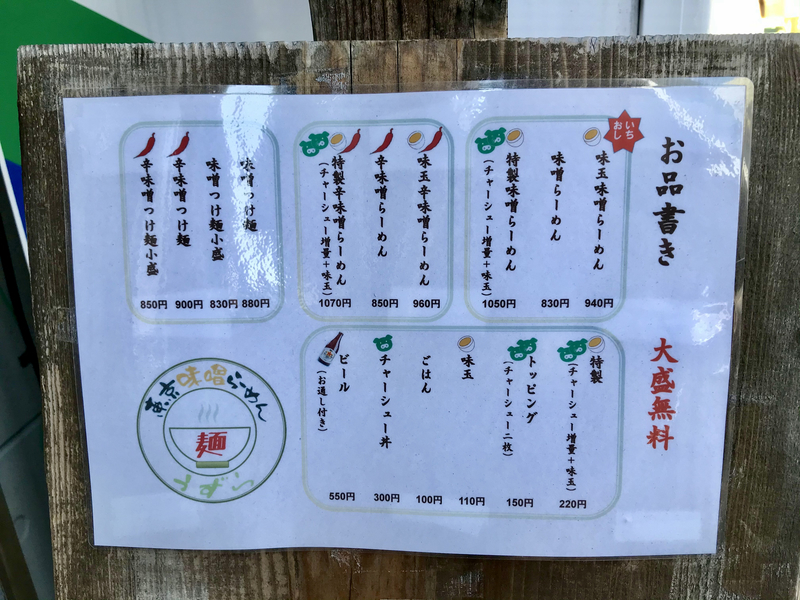 お品書き
大盛無料
いち
おし
味玉味噌らーめん
940円
味噌らーめん
830円
特製味噌らーめん
(チャーシュー増量+味玉)
1050円
味玉辛味噌らーめん
960円
辛味噌らーめん
850円
特製辛味噌らーめん
(チャーシュー増量+味玉)
1070円
味噌つけ麺
880円
味噌つけ麺小盛
830円
辛味噌つけ麺
900円
辛味噌つけ麺小盛
850円
特製
(チャーシュー増量+味玉)
220円
トッピング
(チャーシュー二枚)
150円
味玉
110円
ごはん
100円
チャーシュー丼
300円
ビール
(お通し付き)
550円
東京味噌らーめん
麺